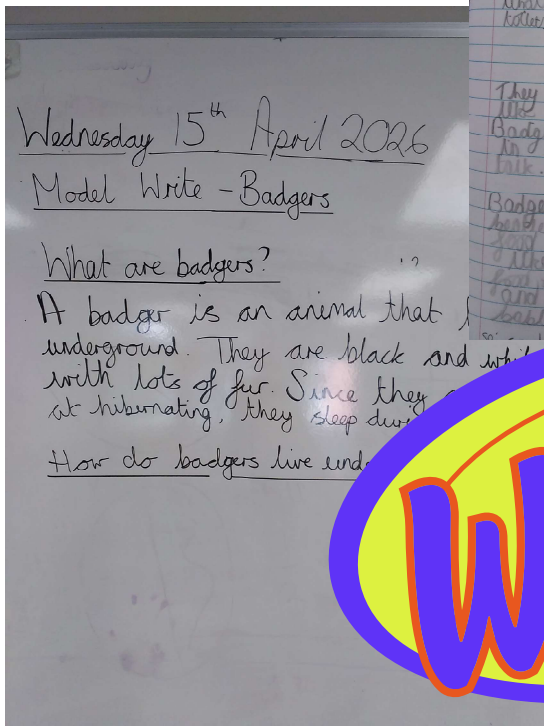 Wednesday 15th April 2026
Model Write - Badgers
What are badgers?
A badger is an animal that
underground. They are black and
with lots of fur. Since they
at hibernating, they sleep
How do badgers live
They
Badge
in
talk.
Badge
good
like
food
and
W